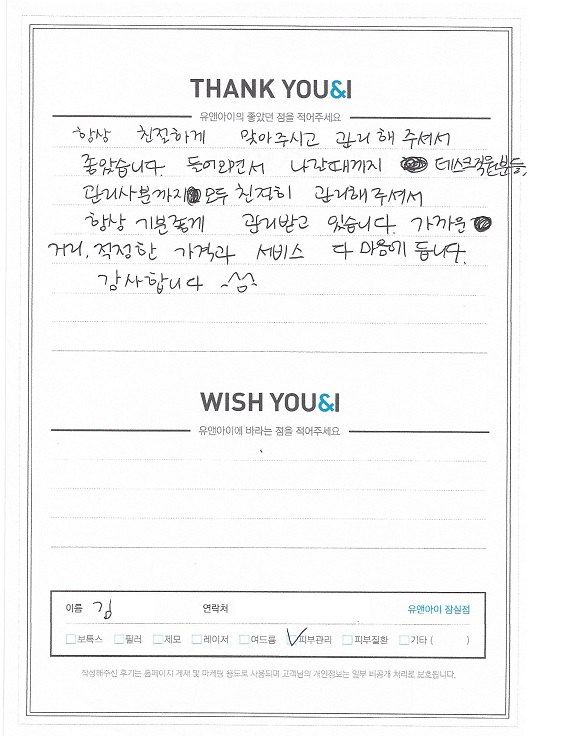 THANK YOU&I
유앤아이의 좋았던 점을 적어주세요
항상 친절하게 맞아주시고 관리해 주셔서
좋았습니다. 들어오면서 나갈때까지 데스크직원분들,
관리사분까지 모두 친절히 관리해주셔서
항상 기분좋게 관리받고 있습니다. 가까운
거리, 적정한 가격과 서비스 다 마음에 듭니다.
감사합니다 ^^
WISH YOU&I
유앤아이에 바라는 점을 적어주세요
이름 김 연락처 유앤아이 잠실점
보톡스 필러 제모 레이저 여드름 피부관리 피부질환 기타 ( )
작성해주신 후기는 홈페이지 게재 및 마케팅 용도로 사용되며 고객님의 개인정보는 일부 비공개 처리로 보호됩니다.